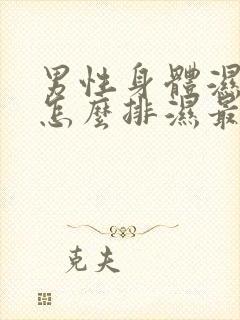 男性身體濕
怎麼排濕最
克夫